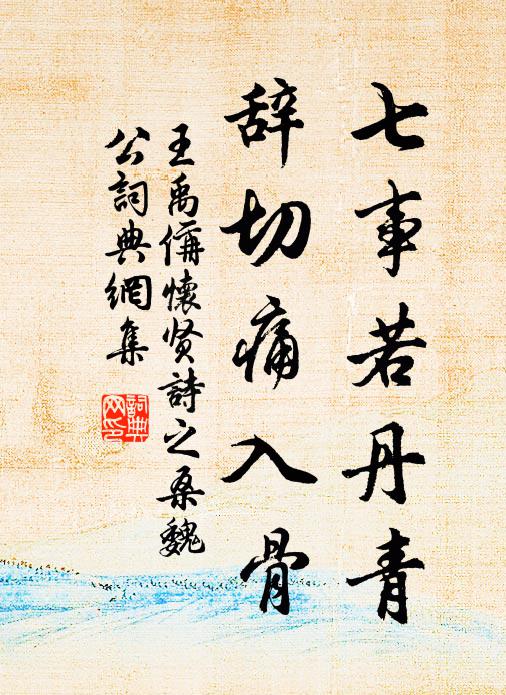 七事若丹青
辞切痛入骨
王禹偁懷贤詩之桑魏
公詞典網集
詞典
网印